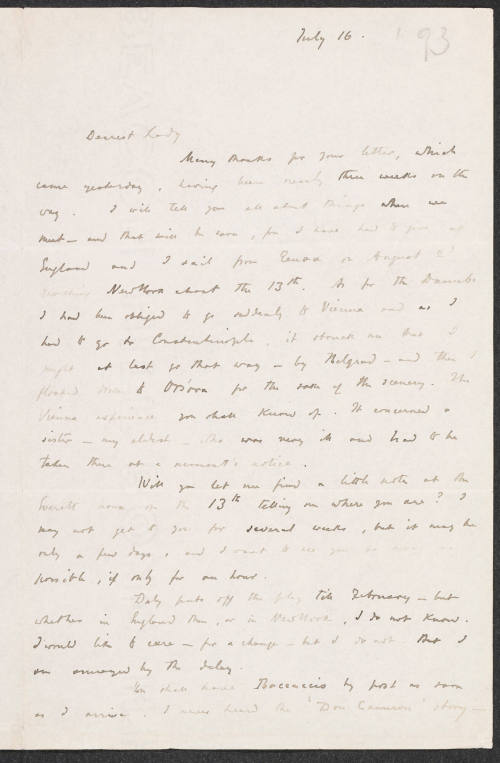 July 16.
'93
Dearest Lady
Many thanks for your letter, which
came yesterday, having been nearly three weeks on the
way. I will tell you all about things when we
meet – and that will be soon, for I have had to give up
England and I sail from Genoa on August 2d
reaching New York about the 13th. As for the Danube
I had been obliged to go suddenly to Vienna and as I
had to go to Constantinople, it struck me that I
might at last go that way – by Belgrad – and then I
floated down to Orsova for the sake of the scenery. The
Vienna experience you shall know of. It concerned a
sister – my eldest – who was very ill and had to be
taken there at a moment's notice.
Will you let me find a little note at the
Everett House on the 13th telling me where you are? I
may not get to you for several weeks, but it may be
only a few days, and I want to see you as soon as
possible, if only for an hour.
Daly puts off the play till February – but
whether in England then, or in New York, I do not know.
I would like to care – for a change – but I do not. But I
am annoyed by the delay.
You shall have Boccaccio by post as soon
as I arrive. I never heard the 'Don Cameron' story –